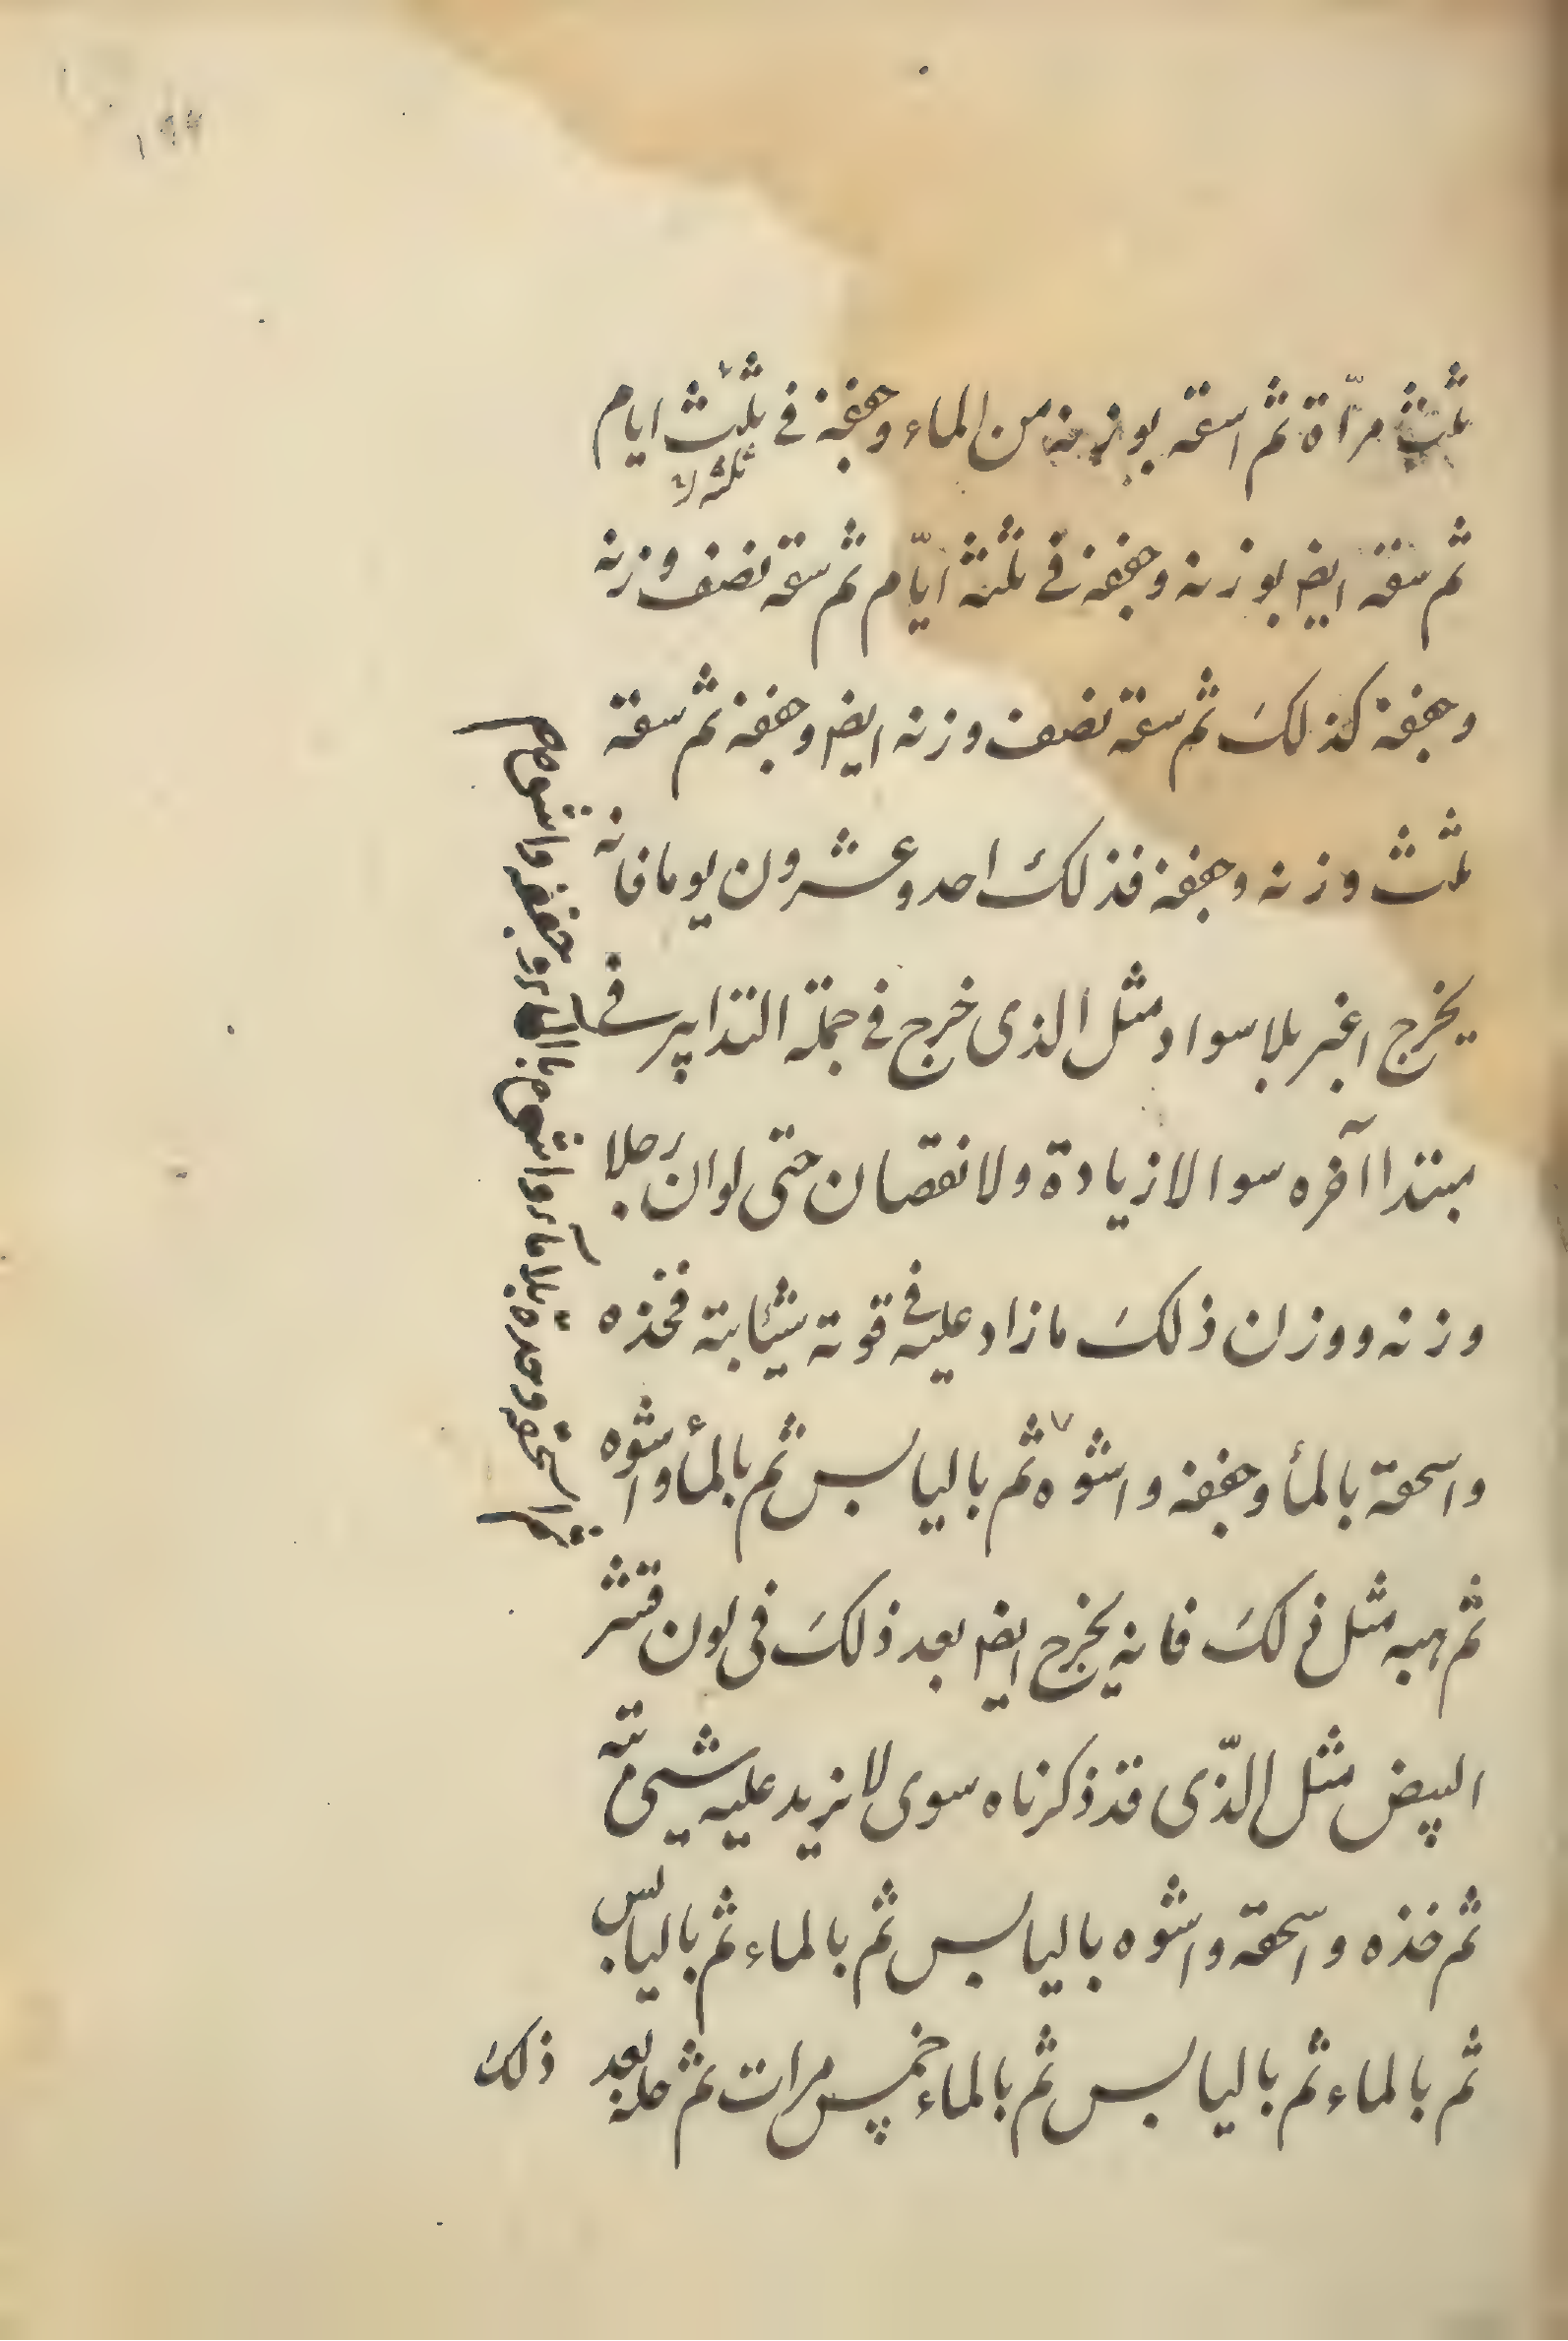 ثلث مراة ثم اسقه بوزنه من الماء وجففه في ثلث ايام
ثم سقه ايضا بوزنه وجففه في ثلثة ايّام ثم سقه نصف وزنه
وجففه كذلك ثم سقه نصف وزنه ايضا وجففه ثم سقه
ثلث وزنه وجففه فذلك احد وعشرون يوما فانه
يخرج اغبر بلا سواد مثل الذى خرج في جملة التدابير في
مبتدا آخره سوا لا زيادة ولا نقصان حتى لو ان رجلا
وزنه ووزن ذلك ما زاد عليه في قوته شيئا بتة فخذه
واسحقه بالمأ وجففه واشوه ثم باليابس ثم بالمأ واشوه
ثم هبه مثل ذلك فانه يخرج ايضا بعد ذلك فى لون قشر
البيض مثل الّذى قد ذكرناه سوى لا يزيد عليه شيئ متة
ثم خذه واسحقه واشوه باليابس ثم بالماء ثم باليابس
ثم بالماء ثم باليابس ثم بالماء خمس مرات ثم حله بعد
ذلك
ثم اسحقه وحده بلا مآء واشوه بالنار وجففه واشوه